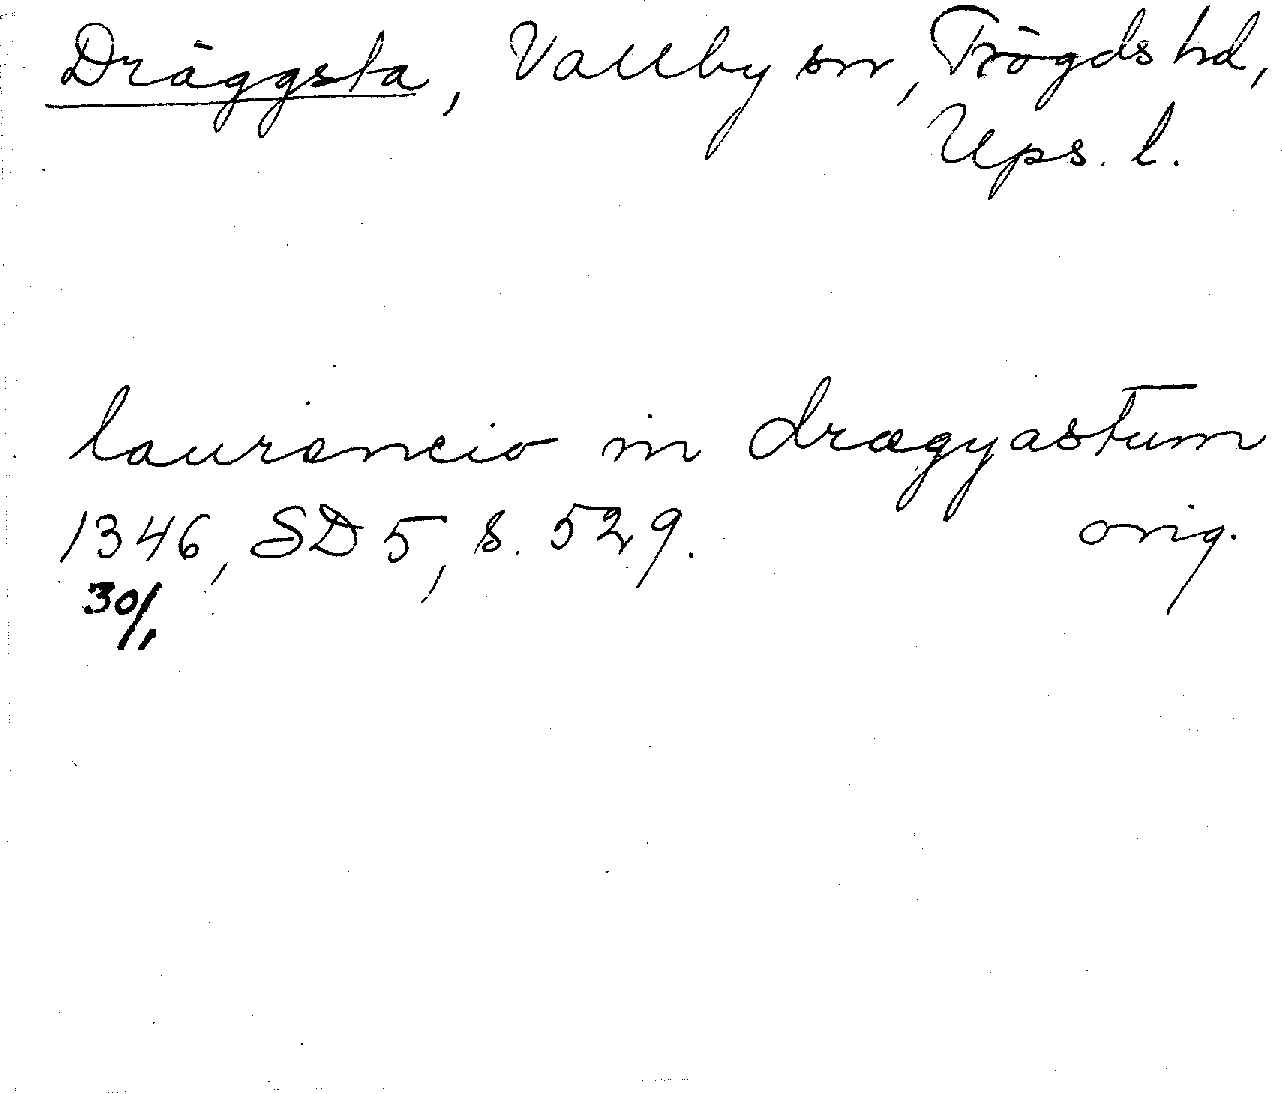 Dräggsta, Vallby sn, Trögds hd,
Ups. l.
laurencio in drægyastum
1346, SD 5, s. 529. orig.
30/1